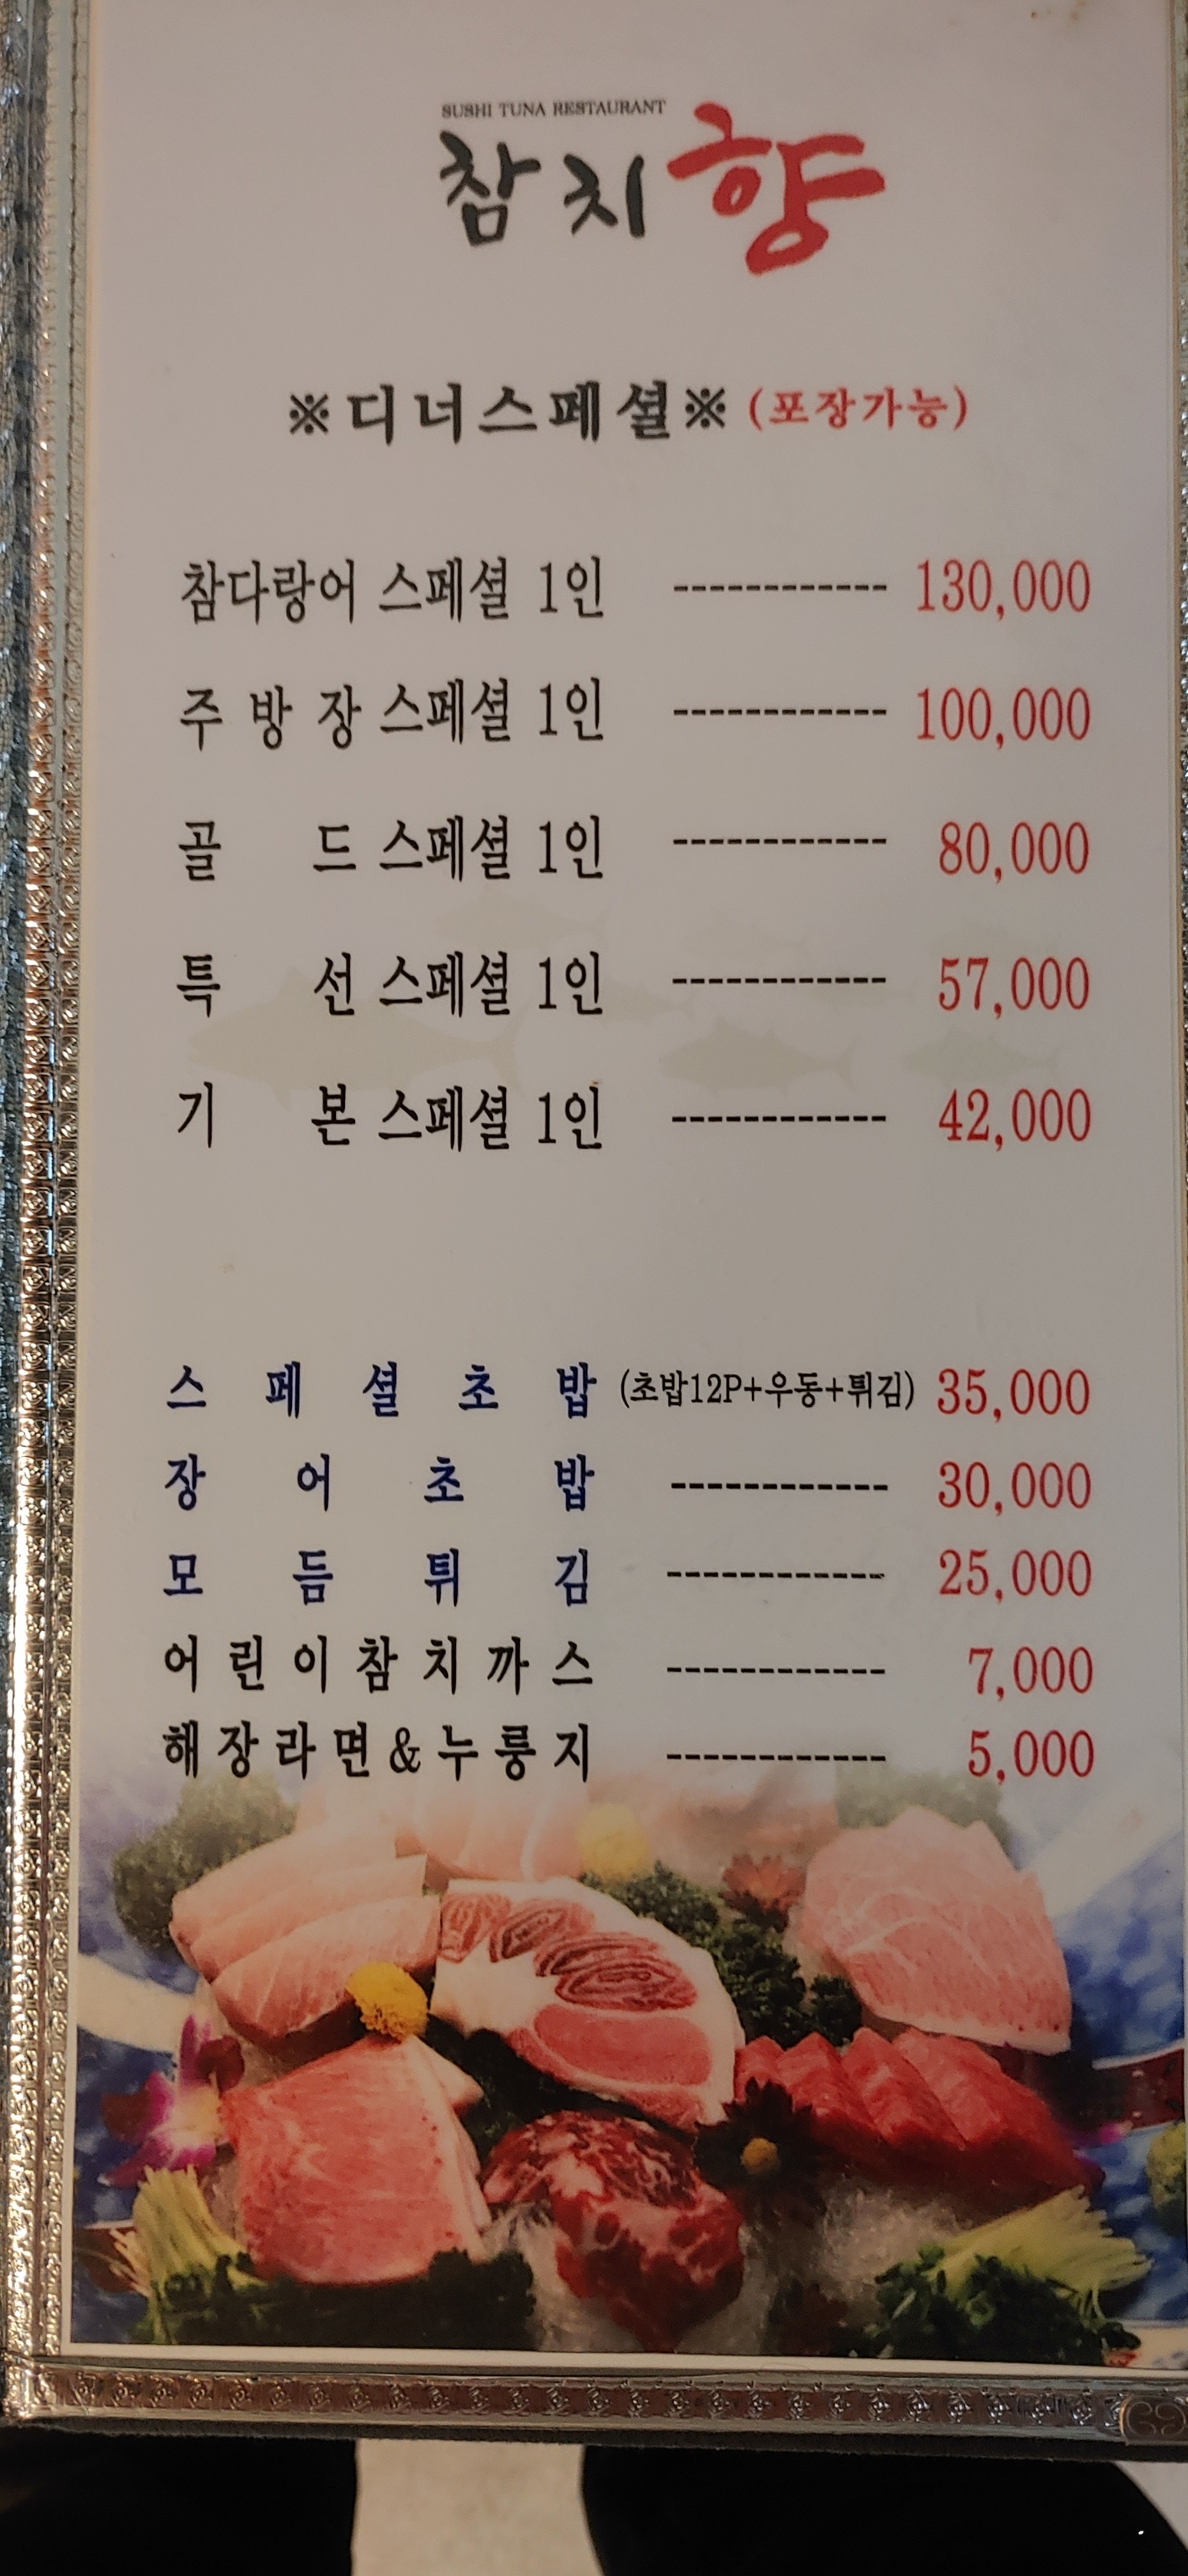 SUSHI TUNA RESTAURANT
참치향
※디너스페셜※ (포장가능)
참다랑어 스페셜 1인 ------------ 130,000
주방장 스페셜 1인 ------------ 100,000
골드 스페셜 1인 ------------ 80,000
특선 스페셜 1인 ------------ 57,000
기본 스페셜 1인 ------------ 42,000
스페셜초밥 (초밥12P+우동+튀김) 35,000
장어초밥 ------------ 30,000
모듬튀김 ------------ 25,000
어린이참치까스 ------------ 7,000
해장라면&누룽지 ------------ 5,000